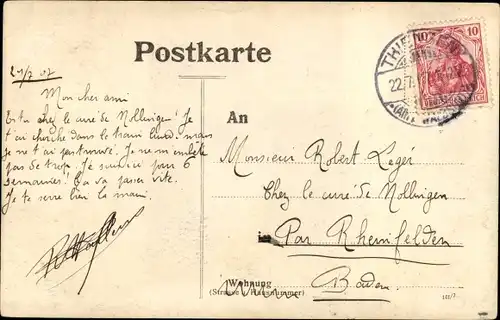 Postkarte
21/7 07
Mon cher ami
Es tu chez le curé de Nollingen? Je
t'ai cherché dans le train lundi mais
je ne t'ai pas trouvé. Je ne m'embête
pas de trop. Je suis ici pour 6
semaines! Ça va passer vite.
Je te serre bien la main.
An
Monsieur Robert Legér
Chez le curé de Nollingen
in Par Rheinfelden
Wohnung
(Strasse u. Hausnummer)
Baden
10
DEUTSCHES REICH
THIENGEN
22.7.